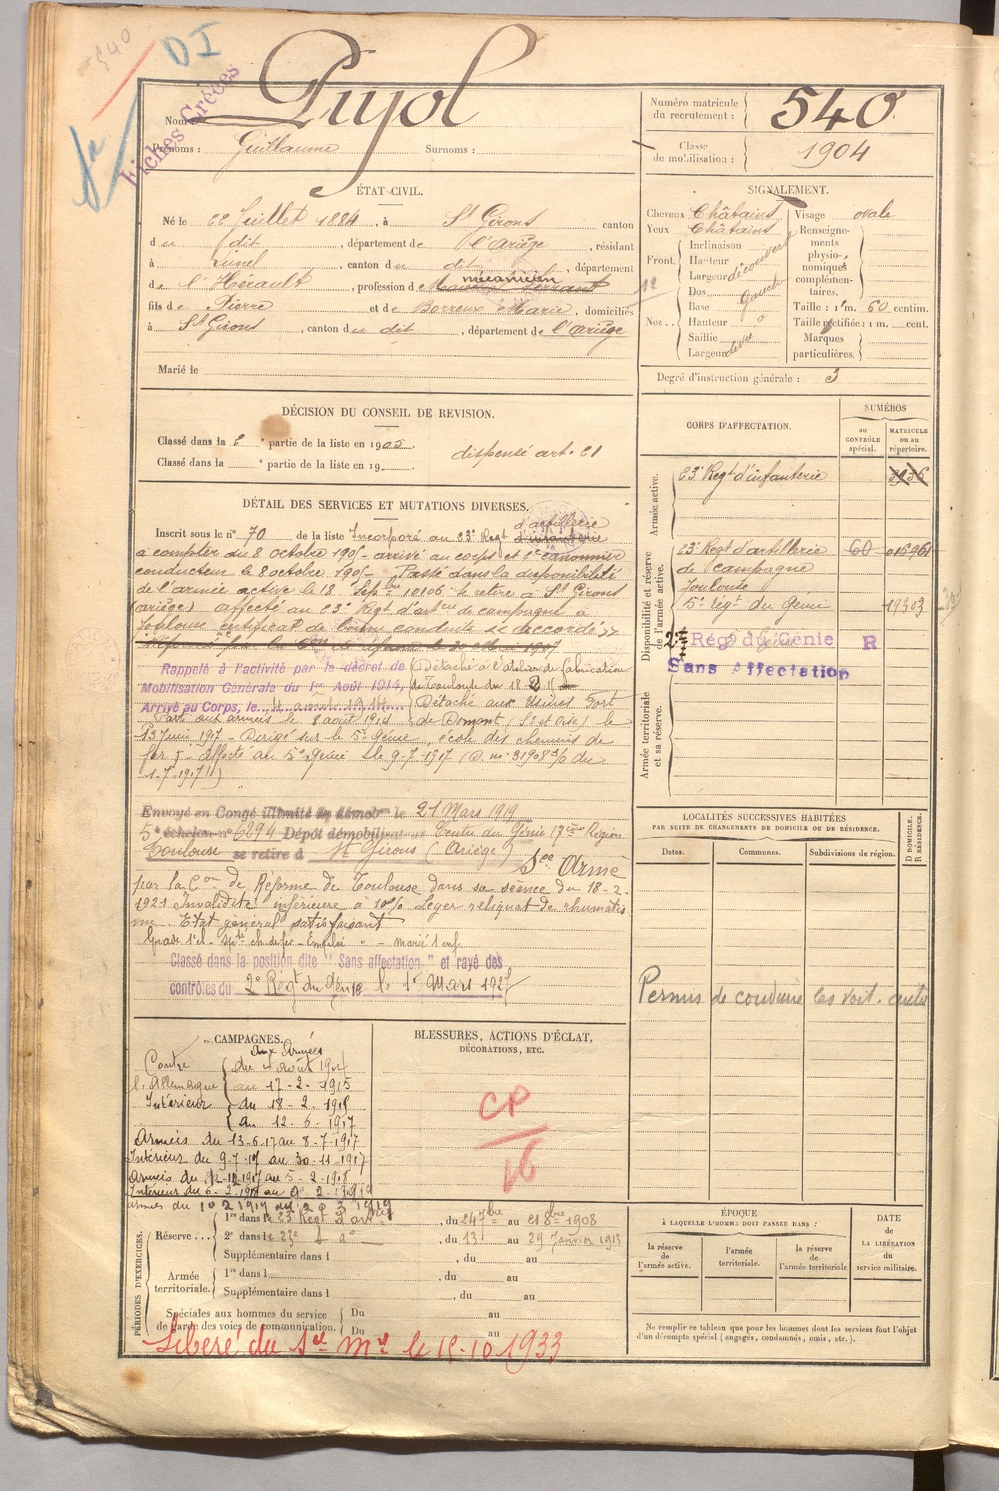 540
DI
Fiches Créées
Nom : Pujol
Prénoms : Guillaume Surnoms :
Numéro matricule du recrutement : 540
Classe de mobilisation : 1904
ÉTAT CIVIL.
Né le 22 Juillet 1884, à St Girons canton
du dit, département de l'Ariège, résidant
à Lunel, canton du dit, département
de l'Hérault, profession de mécanicien
fils de Pierre et de Borreux Marie, domiciliés
à St Girons, canton du dit, département de l'ariège
Marié le
SIGNALEMENT.
Cheveux Châtains
Yeux Châtains
Front. Inclinaison
Hauteur
Largeur découvert
Nez.. Dos
Base Gauche
Hauteur o
Saillie
Largeur
Visage ovale
Renseignements physionomiques complémentaires.
Taille : 1m. 60 centim.
Taille rectifiée : 1 m. cent.
Marques particulières.
12
Degré d'instruction générale : 3
DÉCISION DU CONSEIL DE REVISION.
Classé dans la 2 e partie de la liste en 1905.
Classé dans la e partie de la liste en 19
dispensé art. 21
CORPS D'AFFECTATION.
NUMÉROS
au CONTRÔLE spécial.
MATRICULE ou au répertoire.
Armée active.
23e Regt d'infanterie
Disponibilité et réserve de l'armée active.
23e Regt d'artillerie 60 015961
de campagne
Toulouse
5e régt du Génie 19303
2e Rég du Génie R
Sans affectation
Armée territoriale et sa réserve.
DÉTAIL DES SERVICES ET MUTATIONS DIVERSES.
d'artillerie
Inscrit sous le n° 70 de la liste Incorporé au 23e Regt d'infanterie
à compter du 8 octobre 1905 arrivé au corps et 2e canonnier
conducteur le 8 octobre 1905 Passé dans la disponibilité
de l'armée active le 18 Sepbre 1906 se retire à St Girons
(ariège) affecté au 23e Regt d'artrie de campagne à
Toulouse certificat de bonne conduite accordé
Rappelé à l'activité par le décret de
Mobilisation Générale du 1er Août 1914,
Arrivé au Corps, le 4 août 1914
Détaché à l'atelier de fabrication
de Toulouse du 18 2 15
Détaché aux Usines Fort
de Domont (Set Oise) le
Parti aux armées le 8 août 1914
13 Juin 1917 - Dirigé sur le 5e Génie, école des chemins de
fer - affecté au 5e Génie le 9-7-1917 (D. m. 31908 3/0 du
1.7.1917)
Envoyé en Congé illimité de démobon le 21 Mars 1919
5e échelon n° 6294 Dépôt démobilisateur Centre du Génie 17eme Région
Toulouse se retire à St Girons (Ariège)
Sce Armé
par la Con de Réforme de Toulouse dans sa séance du 18-2-
1921 Invalidité inférieure à 10% Léger reliquat de rhumatis
me. Etat général satisfaisant
Classé dans la position dite "Sans affectation" et rayé des
contrôles du 2e Régt du Génie le 1er Mars 1927
LOCALITÉS SUCCESSIVES HABITÉES
PAR SUITE DE CHANGEMENTS DE DOMICILE OU DE RÉSIDENCE.
Dates. Communes. Subdivisions de région. D DOMICILE. R RÉSIDENCE.
Permis de conduire les voit. auto
CAMPAGNES.
Aux Armées
Contre du 4 août 1914
l'Allemagne au 17-2-1915
Intérieur du 18-2-1915
au 12-6-1917
Armées du 13-6-17 au 8-7-1917
Intérieur du 9-7-17 au 30-11-1917
Armées du 1-12-1917 au 5-2-1918
Intérieur du 6-2-1918 au 9 2-1919
armées du 10 2 1919 au 20 3 1919
BLESSURES, ACTIONS D'ÉCLAT,
DÉCORATIONS, ETC.
CP
16
PÉRIODES D'EXERCICES.
Réserve... 1re dans le 23e Regt d'artie, du 24 7bre au 21 8bre 1908
2e dans le 23e do, du 13 au 29 Janvier 1913
Supplémentaire dans l , du au
Armée territoriale. 1re dans l , du au
Supplémentaire dans l , du au
Spéciales aux hommes du service Du au
de garde des voies de communication. Du au
Libéré du Sce Mre le 15-10-1933
ÉPOQUE
À LAQUELLE L'HOMME DOIT PASSER DANS :
la réserve de l'armée active.
l'armée territoriale.
la réserve de l'armée territoriale
DATE DE LA LIBÉRATION du service militaire.
Ne remplir ce tableau que pour les hommes dont les services font l'objet
d'un décompte spécial (engagés, condamnés, omis, etc.).